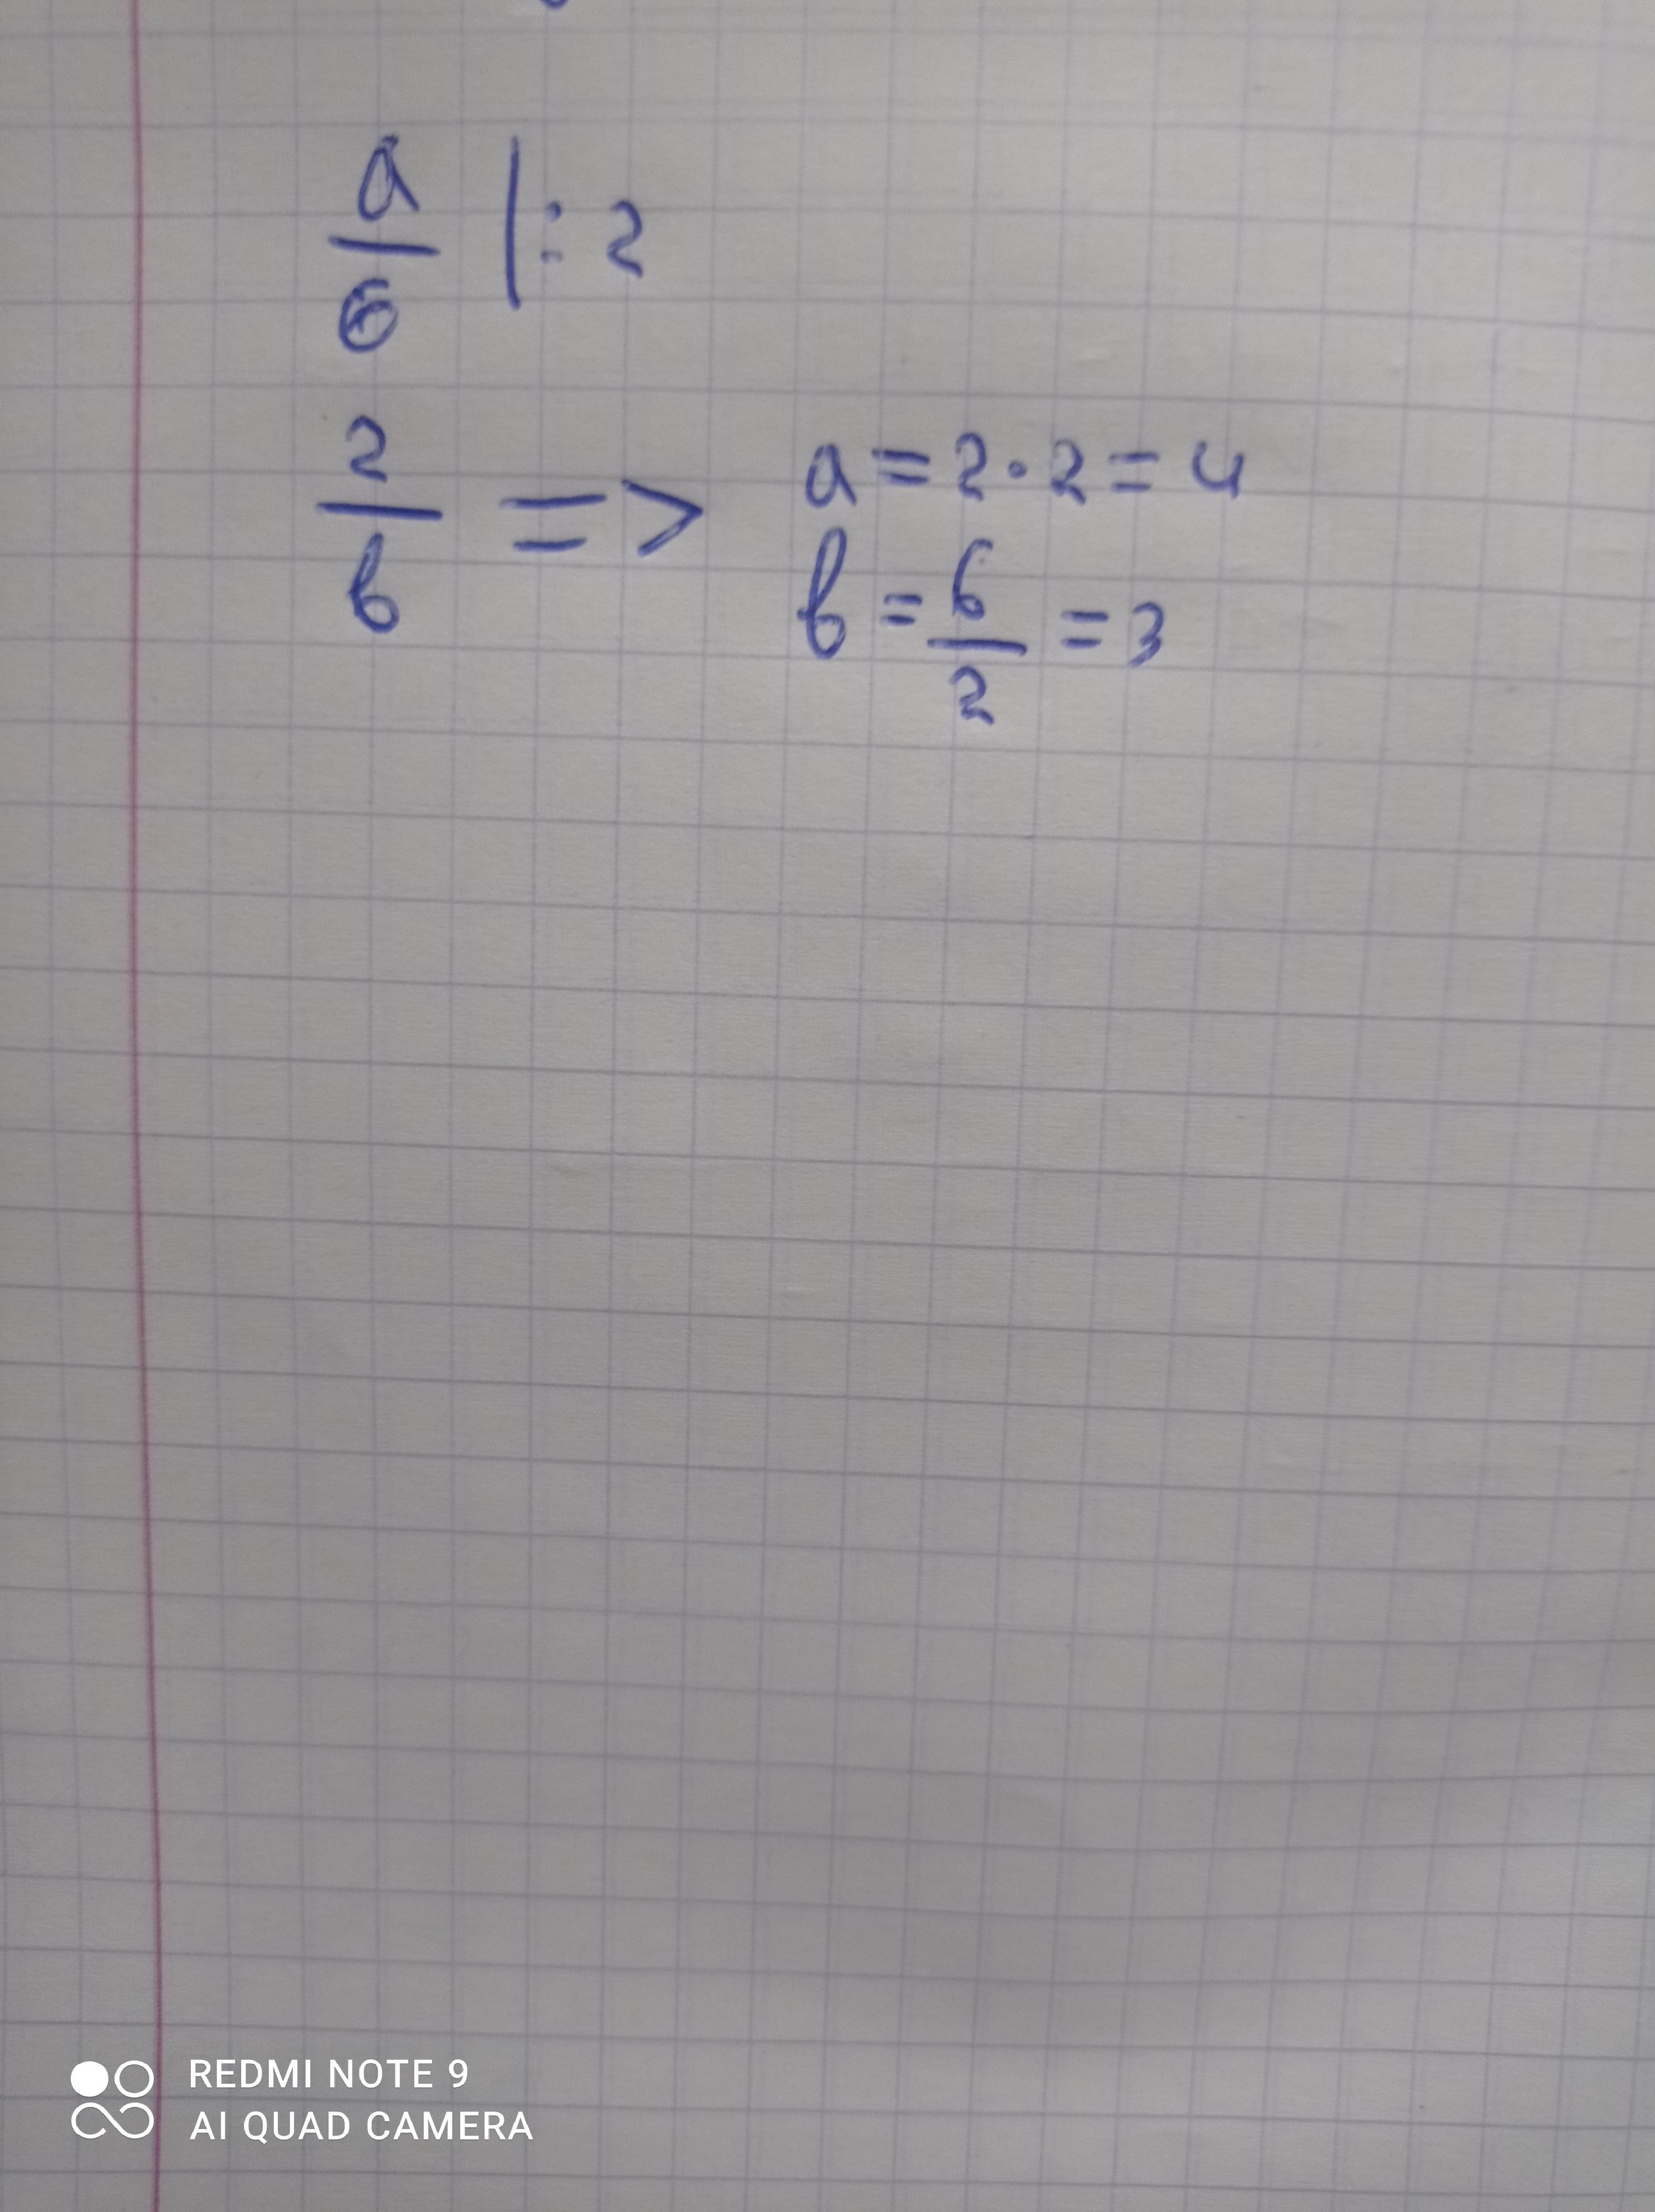 a/6 | : 2
2/b => a = 2 · 2 = 4
b = 6/2 = 3
REDMI NOTE 9
AI QUAD CAMERA